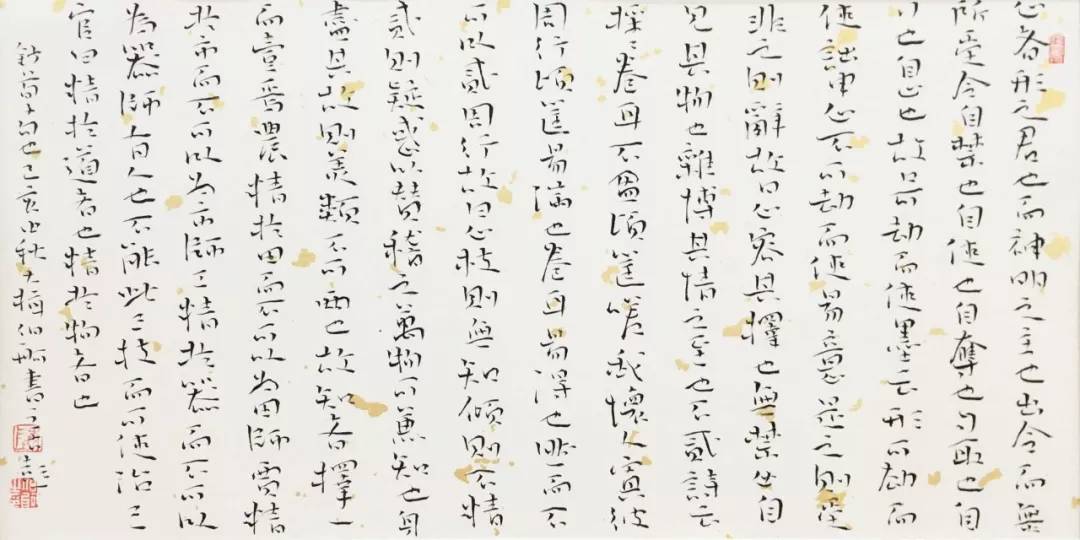 心者形之君也而神明之主也出令而無
所受令自禁也自使也自奪也自取也自
行也自止也故口可劫而使墨云形可劫而
使詘申心不可劫而使易意是之則受
非之則辭故曰心容其擇也無禁必自
見其物也雜博其情之至也不貳詩云
採〻卷耳不盈頃筐嗟我懷人寘彼
周行頃筐易滿也卷耳易得也然而不
可以貳周行故曰心枝則無知傾則不精
貳則疑惑以贊稽之萬物可兼知也身
盡其故則美類不可兩也故知者擇一
而壹焉農精於田而不可以為田師賈精
於市而不可以為市師工精於器而不可以
為器師有人也不能此三技而可使治三
官曰精於道者也精於物者也
鈔荀子句也己亥中秋大梅伯舟書